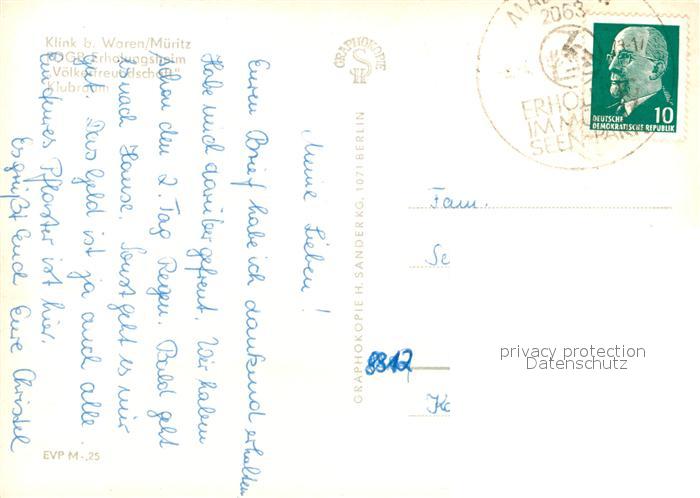 Klink b. Waren/Müritz
FDGB-Erholungsheim
"Völkerfreundschaft"
Klubraum
Meine Lieben!
Euren Brief habe ich dankend erhalten
Habe mich darüber gefreut. Wir haben
schon den 2. Tag Regen. Bald geht
es nach Hause. Sonst geht es mir
gut. Das Geld ist ja auch alle.
Ein feines Pflaster ist hier.
Es grüßt Euch Eure Christel
EVP M -,25
GRAPHOKOPIE
GRAPHOKOPIE H. SANDER KG, 1071 BERLIN
2063
ERHOL
IM MÜ
SEEN-PARK
10
DEUTSCHE
DEMOKRATISCHE REPUBLIK
Fam.
8812
privacy protection
Datenschutz